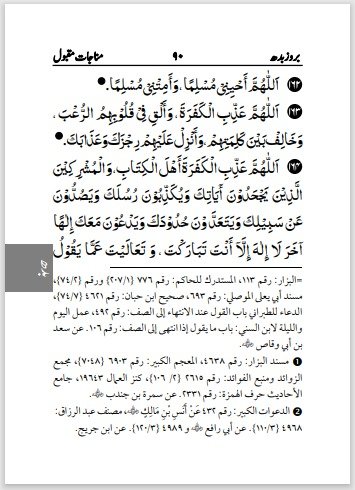 بروز بدھ ۹۰ مناجات مقبول
۱۶۲ اَللّٰهُمَّ أَحْيِنِيْ مُسْلِمًا، وَأَمِتْنِيْ مُسْلِمًا. ❶
۱۶۳ اَللّٰهُمَّ عَذِّبِ الْكَفَرَةَ، وَأَلْقِ فِيْ قُلُوْبِهِمُ الرُّعْبَ،
وَخَالِفْ بَيْنَ كَلِمَتِهِمْ، وَأَنْزِلْ عَلَيْهِمْ رِجْزَكَ وَعَذَابَكَ. ❷
۱۶۴ اَللّٰهُمَّ عَذِّبِ الْكَفَرَةَ أَهْلَ الْكِتَابِ، وَالْمُشْرِكِيْنَ
الَّذِيْنَ يَجْحَدُوْنَ آيَاتِكَ وَيُكَذِّبُوْنَ رُسُلَكَ وَيَصُدُّوْنَ
عَنْ سَبِيْلِكَ وَيَتَعَدَّوْنَ حُدُوْدَكَ وَيَدْعُوْنَ مَعَكَ إِلٰهًا
آخَرَ لَا إِلٰهَ إِلَّا أَنْتَ تَبَارَكْتَ، وَ تَعَالَيْتَ عَمَّا يَقُوْلُ
بدھ
=البزار: رقم ١١٣، المستدرك للحاكم: رقم ٧٧٦ {٢٠٧/١} ورقم {٧٤/٢}،
مسند أبي يعلى الموصلي: رقم ٦٩٣، صحيح ابن حبان: رقم ٤٦٢١ {٧٤/٧}،
الدعاء للطبراني باب القول عند الانتهاء إلى الصف: رقم ٤٩٢، عمل اليوم
والليلة لابن السني: باب ما يقول إذا انتهى إلى الصف: رقم ١٠٦. عن سعد
بن أبي وقاص ﷺ.
❶ مسند البزار: رقم ٤٦٣٨، المعجم الكبير: رقم ٦٩٠٣ {٧٠٤٨}، مجمع
الزوائد ومنبع الفوائد: رقم ٢٦١٥ {٢/ ١٠٦}، كنز العمال ١٩٦٤٣، جامع
الأحاديث حرف الهمزة: رقم ٢٣٣١. عن سمرة بن جندب.
❷ الدعوات الكبير: رقم ٤٣٢ عَنْ أَنَسِ بْنِ مَالِكٍ، مصنف عبد الرزاق:
٤٩٦٨ {١١٠/٣}. عن أبي رافع و ٤٩٨٩ {١٢٠/٣}. عن ابن جريج.